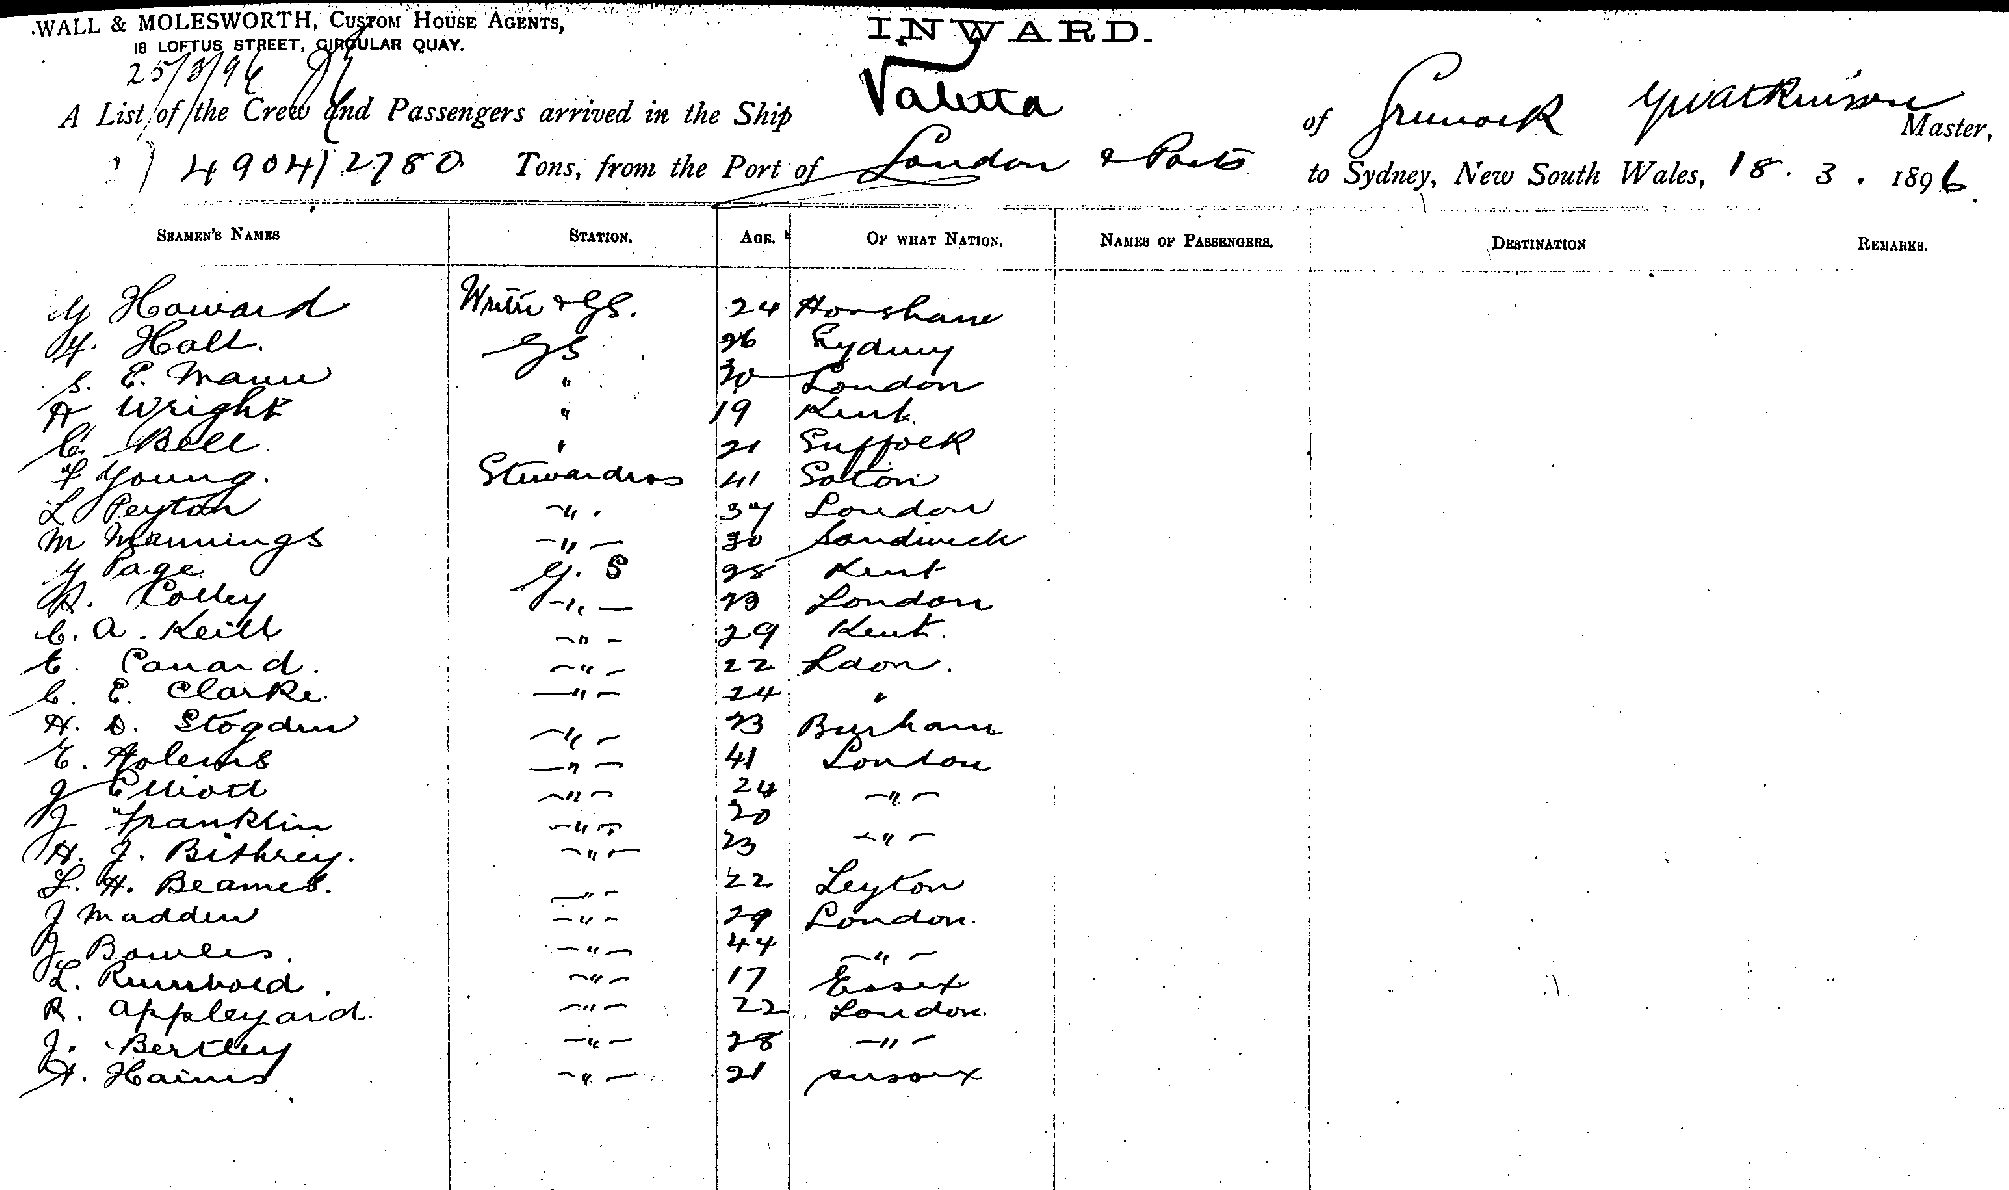 WALL & MOLESWORTH, CUSTOM HOUSE AGENTS,
18 LOFTUS STREET, CIRCULAR QUAY.
INWARD.
25/3/96
A List of the Crew and Passengers arrived in the Ship Valetta of Greenock G W Atkinson Master,
4904/2780 Tons, from the Port of London & Ports to Sydney, New South Wales, 18. 3. 1896
SEAMEN'S NAMES STATION. AGE. OF WHAT NATION. NAMES OF PASSENGERS. DESTINATION REMARKS.
G Howard Writer & GS. 24
H. Hall. GS 26 Sydney
S. E. Mann " 30 London
A Wright " 19 Kent
C. Bell. " 21 Suffolk
F Young. Stewardess 41 Soton
L Peyton -"- 37 London
M Mannings -"- 30 Sandwich
G Page G. S 25 Kent
Colley -"- 23 London
C. A. Keill -"- 29 Kent.
E. Canard. -"- 22 Ldon.
C. E. Clarke -"- 24 "
H. D. Stogden -"- 23 Burham
E. Holems -"- 41 London
J Elliott -"- 24 -"-
J Franklin -"- 20
H. J. Bithrey. -"- 23 -"-
L. H. Beames. -"- 22 Leyton
J Madden -"- 29 London
J Bowles. -"- 44 -"-
L. Rumbold. -"- 17 Essex
R. Appleyard. -"- 22 London
J. Bertley -"- 28 -"-
H. Haims -"- 21 sussex